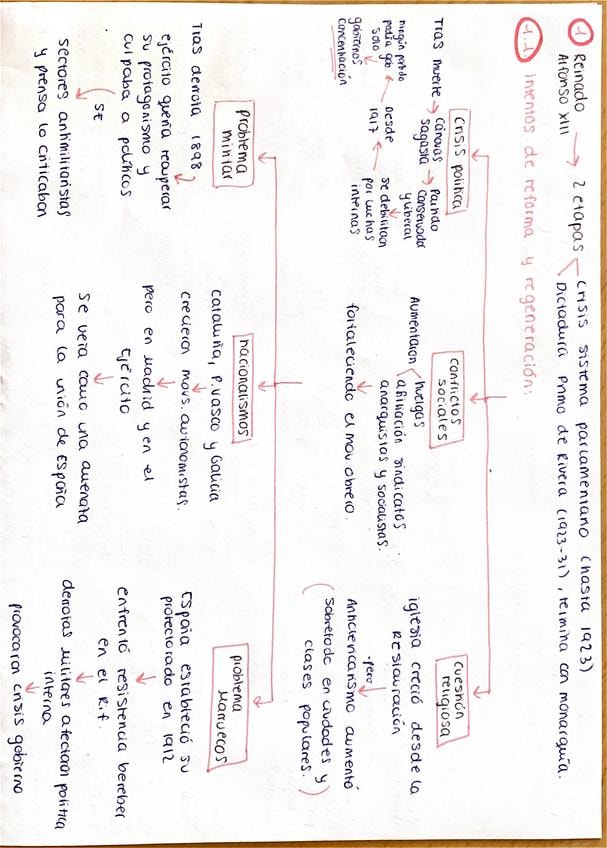 ① Reinado Alfonso XIII → 2 etapas < Crisis sistema parlamentario (hasta 1923)
Dictadura Primo de Rivera (1923-31), termina con monarquía.
1.1 intentos de reforma y regeneración:
crisis política
Tras muerte → Cánovas Sagasta → Partido conservador y liberal
se debilitaron por luchas internas
Desde 1917
ningún partido podía gob solo
gobiernos concentración
conflictos sociales
Aumentaron < huelgas
afiliación sindicatos anarquistas y socialistas.
fortaleciendo el mov obrero.
cuestión religiosa
iglesia creció desde la Restauración
pero
Anticlericalismo aumentó
(sobretodo en ciudades y clases populares.)
problema militar
Tras derrota 1898
ejército quería recuperar
su protagonismo y
culpaba a políticos
se
sectores antimilitaristas
y prensa lo criticaban
nacionalismos
cataluña, P. Vasco y Galicia
crecieron movs. autonomistas.
pero en Madrid y en el
Ejército
se verá como una amenaza
para la unión de España
problema Marruecos
España estableció su
protectorado en 1912
enfrentó resistencia bereber
en el Rif.
derrotas militares afectaron política
interna
provocaron crisis gobierno